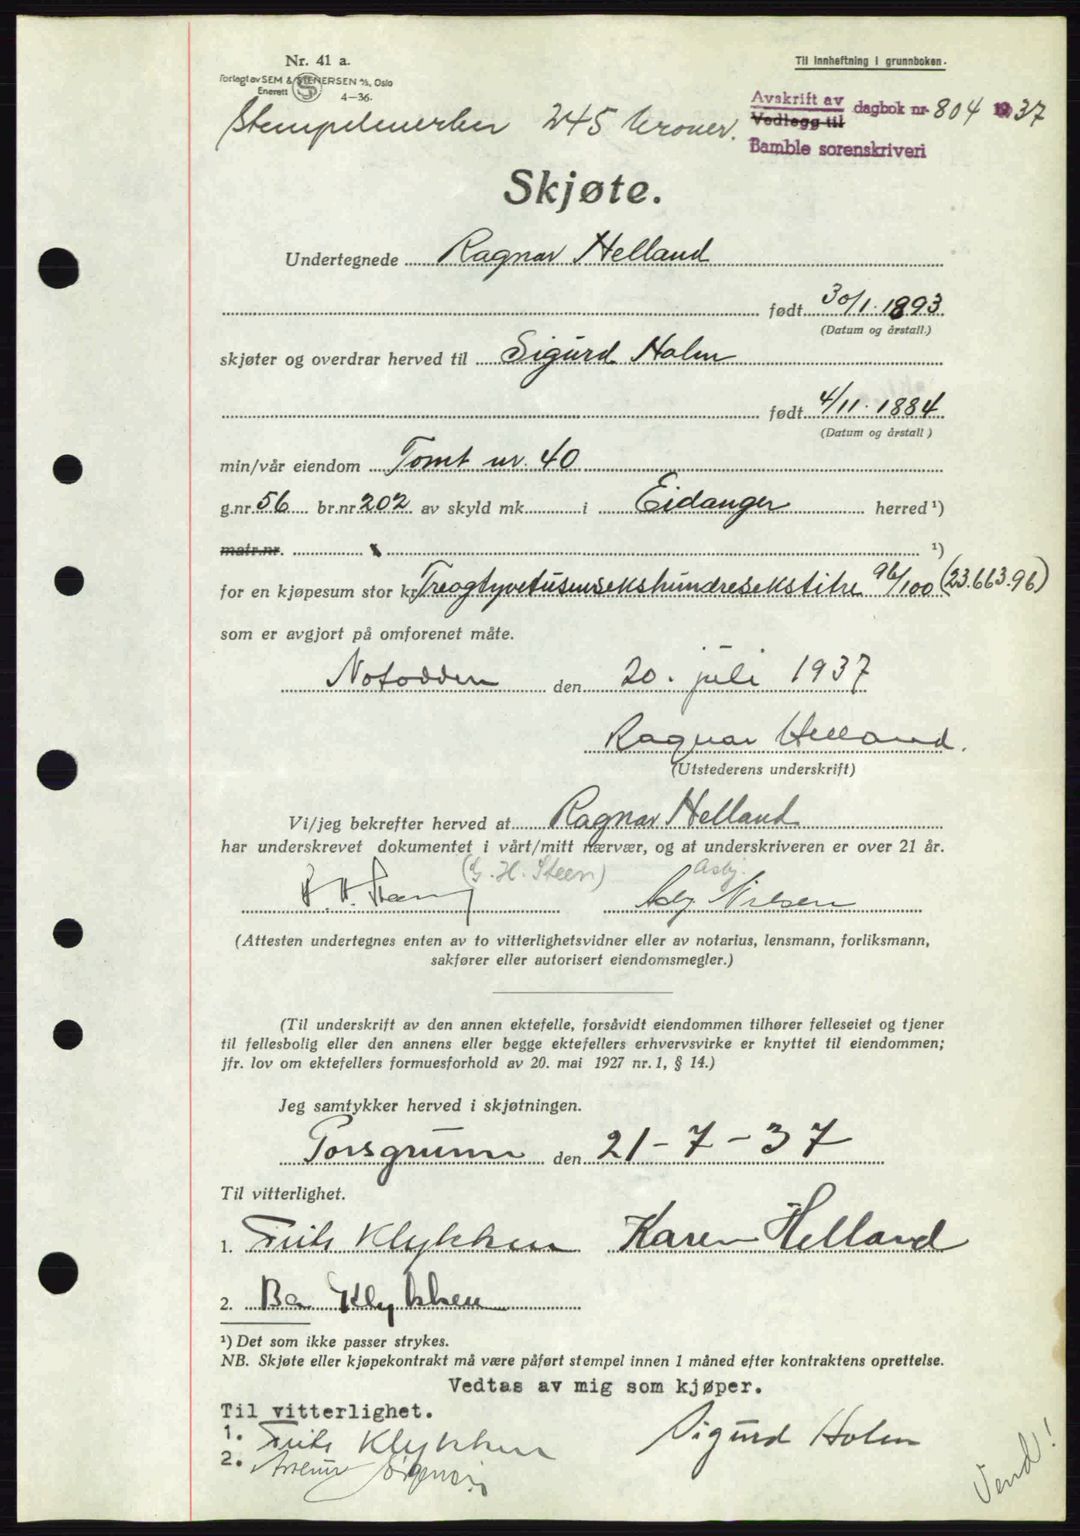 Nr. 41 a.
Forlegt av SEM & STENERSEN A/S, Oslo
Enerett 4-36.
Til innheftning i grunnboken.
Stempelmerker 245 kroner.
Avskrift av
Vedlegg til
dagbok nr. 804 1937
Bamble sorenskriveri
Skjøte.
Undertegnede Ragnar Helland
født 30/1. 1893
(Datum og årstall.)
skjøter og overdrar herved til Sigurd Holm
født 4/11. 1884
(Datum og årstall)
min/vår eiendom Tomt nr. 40
g.nr. 56 br.nr. 202 av skyld mk. i Eidanger herred ¹)
matr.nr. ¹)
for en kjøpesum stor kr. Treogtyvetusensekshundresekstitre 96/100 (23.663.96)
som er avgjort på omforenet måte.
Notodden den 20. juli 1937
Ragnar Helland.
(Utstederens underskrift)
Vi/jeg bekrefter herved at Ragnar Helland
har underskrevet dokumentet i vårt/mitt nærvær, og at underskriveren er over 21 år.
(G. H. Steen) Asbj.
H. Steen Asbj Nilsen
(Attesten undertegnes enten av to vitterlighetsvidner eller av notarius, lensmann, forliksmann,
sakfører eller autorisert eiendomsmegler.)
(Til underskrift av den annen ektefelle, forsåvidt eiendommen tilhører felleseiet og tjener
til fellesbolig eller den annens eller begge ektefellers erhvervsvirke er knyttet til eiendommen;
jfr. lov om ektefellers formuesforhold av 20. mai 1927 nr. 1, § 14.)
Jeg samtykker herved i skjøtningen.
Porsgrunn den 21-7-37
Til vitterlighet.
1. Frits Klykken Karen Helland
2. Ba Klykken
¹) Det som ikke passer strykes.
NB. Skjøte eller kjøpekontrakt må være påført stempel innen 1 måned efter kontraktens oprettelse.
Vedtas av mig som kjøper.
Til vitterlighet.
1. Frits Klykken Sigurd Holm
2.
Vend!